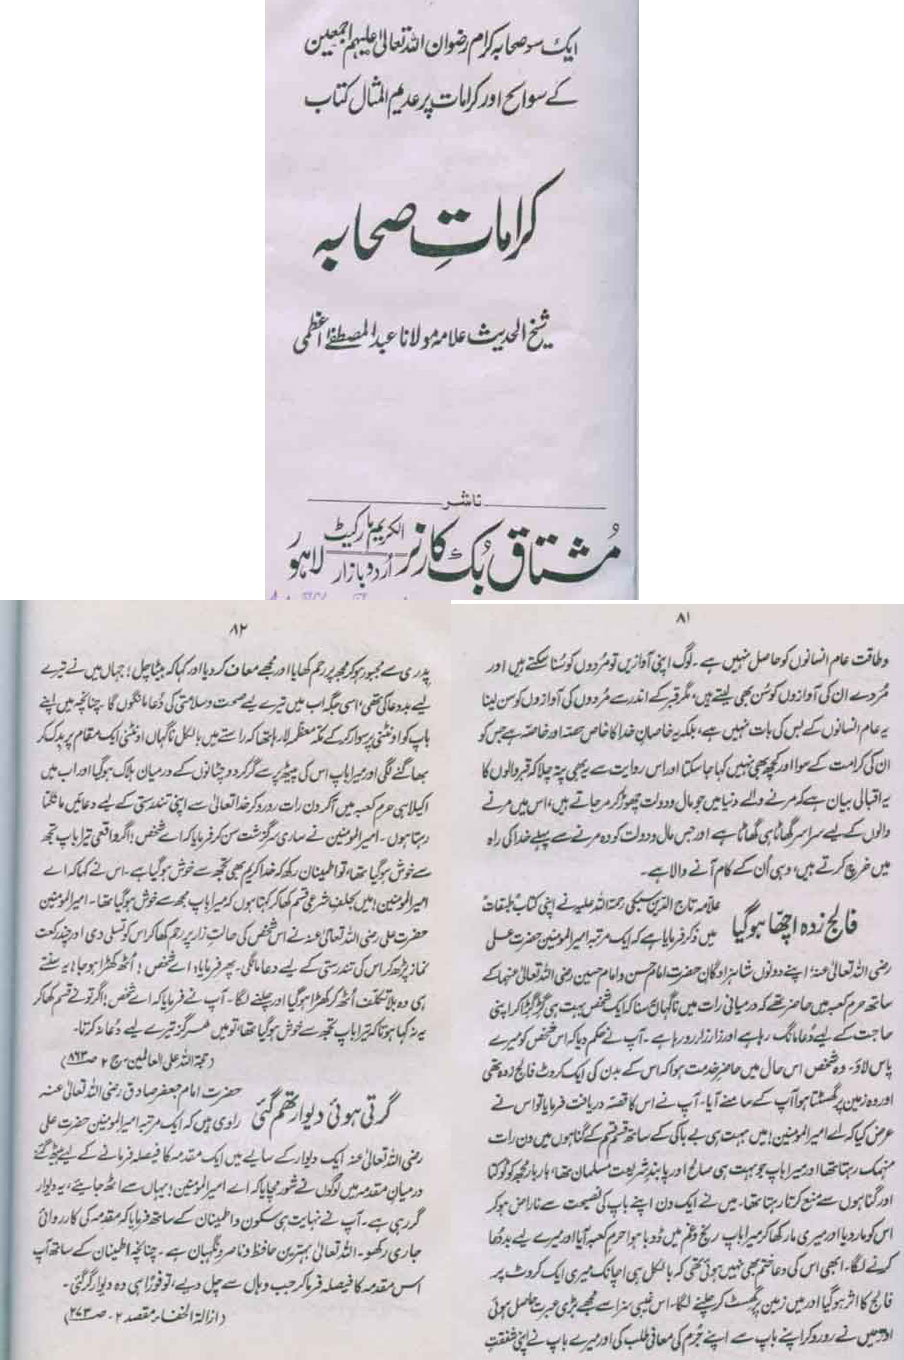 ایک سو صحابہ کرام رضوان اللہ تعالیٰ علیہم اجمعین
کے سوانح اور کرامات پر عدیم المثال کتاب
کراماتِ صحابہ
شیخ الحدیث علامہ مولانا عبد المصطفےٰ اعظمی
ناشر
مُشتاق بُک کارنر الکریم مارکیٹ اُردو بازار لاہور
۸۱
و طاقت عام انسانوں کو حاصل نہیں ہے۔ لوگ اپنی آوازیں تو مُردوں کو سُنا سکتے ہیں اور
مُردے ان کی آوازوں کو سُن بھی لیتے ہیں، مگر قبر کے اندر سے مُردوں کی آوازوں کو سن لینا
یہ عام انسانوں کے بس کی بات نہیں ہے، بلکہ یہ خاصانِ خدا کا خاص حصہ اور خاصہ ہے جس کو
ان کی کرامت کے سوا اور کچھ بھی نہیں کہا جا سکتا اور اس روایت سے یہ بھی پتہ چلا کہ قبر والوں کا
یہ اقبالی بیان ہے کہ مرنے والے دنیا میں جو مال و دولت چھوڑ کر مر جاتے ہیں، اس میں مرنے
والوں کے لیے سراسر گھاٹا ہی گھاٹا ہے اور جس مال و دولت کو وہ مرنے سے پہلے خدا کی راہ
میں خرچ کرتے ہیں، وہی اُن کے کام آنے والا ہے۔
فالج زدہ اچھا ہوگیا
علامہ تاج الدین سبکی رحمۃ اللہ علیہ نے اپنی کتاب طبقات
میں ذکر فرمایا ہے کہ ایک مرتبہ امیرالمومنین حضرت علی
رضی اللہ تعالیٰ عنہ اپنے دونوں شاہزادگان حضرت امام حسن و امام حسین رضی اللہ تعالیٰ عنہما کے
ساتھ حرمِ کعبہ میں حاضر تھے کہ درمیانی رات میں ناگہاں سنا کہ ایک شخص بہت ہی گڑگڑا کر اپنی
حاجت کے لیے دُعا مانگ رہا ہے اور زار زار رو رہا ہے۔ آپ نے حکم دیا کہ اس شخص کو میرے
پاس لاؤ۔ وہ شخص اس حال میں حاضرِ خدمت ہوا کہ اس کے بدن کی ایک کروٹ فالج زدہ تھی
اور وہ زمین پر گھسٹتا ہوا آپ کے سامنے آیا۔ آپ نے اس کا قصہ دریافت فرمایا تو اس نے
عرض کیا کہ اے امیرالمومنین! میں بہت ہی بے باکی کے ساتھ قسم قسم کے گناہوں میں دن رات
منہمک رہتا تھا اور میرا باپ جو بہت ہی صالح اور پابندِ شریعت مسلمان تھا، بار بار مجھ کو ٹوکتا
اور گناہوں سے منع کرتا رہتا تھا۔ میں نے ایک دن اپنے باپ کی نصیحت سے ناراض ہو کر
اس کو مار دیا اور میری مار کھا کر میرا باپ رنج و غم میں ڈوبا ہوا حرمِ کعبہ آیا اور میرے لیے بددُعا
کرنے لگا۔ ابھی اس کی دعا ختم بھی نہیں ہوئی تھی کہ بالکل ہی اچانک میری ایک کروٹ پر
فالج کا اثر ہو گیا اور میں زمین پر گھسٹ کر چلنے لگا۔ اس غیبی سزا سے مجھے بڑی عبرت حاصل ہوئی
اور میں نے رو رو کر اپنے باپ سے اپنے جُرم کی معافی طلب کی اور میرے باپ نے اپنی شفقتِ
۸۲
پدری سے مجبور ہو کر مجھ پر رحم کھایا اور مجھے معاف کر دیا اور کہا کہ بیٹا چل! جہاں میں نے تیرے
لیے بددعا کی تھی، اسی جگہ اب میں تیرے لیے صحت و سلامتی کی دُعا مانگوں گا۔ چنانچہ میں اپنے
باپ کو اونٹنی پر سوار کر کے مکہ معظمہ لا رہا تھا کہ راستے میں بالکل ناگہاں اونٹنی ایک مقام پر بدک کر
بھاگنے لگی اور میرا باپ اس کی پیٹھ پر سے گر کر دو چٹانوں کے درمیان ہلاک ہو گیا اور اب میں
اکیلا ہی حرمِ کعبہ میں آ کر دن رات رو رو کر خدا تعالیٰ سے اپنی تندرستی کے لیے دعائیں مانگتا
رہتا ہوں۔ امیرالمومنین نے ساری سرگزشت سن کر فرمایا کہ اے شخص! اگر واقعی تیرا باپ تجھ
سے خوش ہو گیا تھا، تو اطمینان رکھ کہ خدا کریم بھی تجھ سے خوش ہو گیا ہے۔ اس نے کہا کہ اے
امیرالمومنین! میں بحلفِ شرعی قسم کھا کر کہتا ہوں کہ میرا باپ مجھ سے خوش ہو گیا تھا۔ امیرالمومنین
حضرت علی رضی اللہ تعالیٰ عنہ نے اس شخص کی حالتِ زار پر رحم کھا کر اس کو تسلی دی اور چند رکعت
نماز پڑھ کر اس کی تندرستی کے لیے دعا مانگی۔ پھر فرمایا: اے شخص! اُٹھ کھڑا ہو جا! یہ سنتے
ہی وہ بلا تکلف اُٹھ کر کھڑا ہو گیا اور چلنے لگا۔ آپ نے فرمایا کہ اے شخص! اگر تو نے قسم کھا کر
یہ نہ کہا ہوتا کہ تیرا باپ تجھ سے خوش ہو گیا تھا، تو میں ہرگز تیرے لیے دعا نہ کرتا۔
(حجۃ اللہ علی العالمین، ج ۲ ص۸۶۳)
گرتی ہوئی دیوار تھم گئی
حضرت امام جعفر صادق رضی اللہ تعالیٰ عنہ
راوی ہیں کہ ایک مرتبہ امیرالمومنین حضرت علی
رضی اللہ تعالیٰ عنہ ایک دیوار کے سایے میں ایک مقدمہ کا فیصلہ فرمانے کے لیے بیٹھ گئے
درمیانِ مقدمہ میں لوگوں نے شور مچایا کہ اے امیرالمومنین! یہاں سے اٹھ جائیے، یہ دیوار
گر رہی ہے۔ آپ نے نہایت ہی سکون و اطمینان کے ساتھ فرمایا کہ مقدمہ کی کارروائی
جاری رکھو۔ اللہ تعالیٰ بہترین حافظ و ناصر و نگہبان ہے۔ چنانچہ اطمینان کے ساتھ آپ
اس مقدمہ کا فیصلہ فرما کر جب وہاں سے چل دیے، تو فوراً ہی وہ دیوار گر گئی۔
(ازالۃ الخفاء، مقصد ۲، ص۲۷۳)